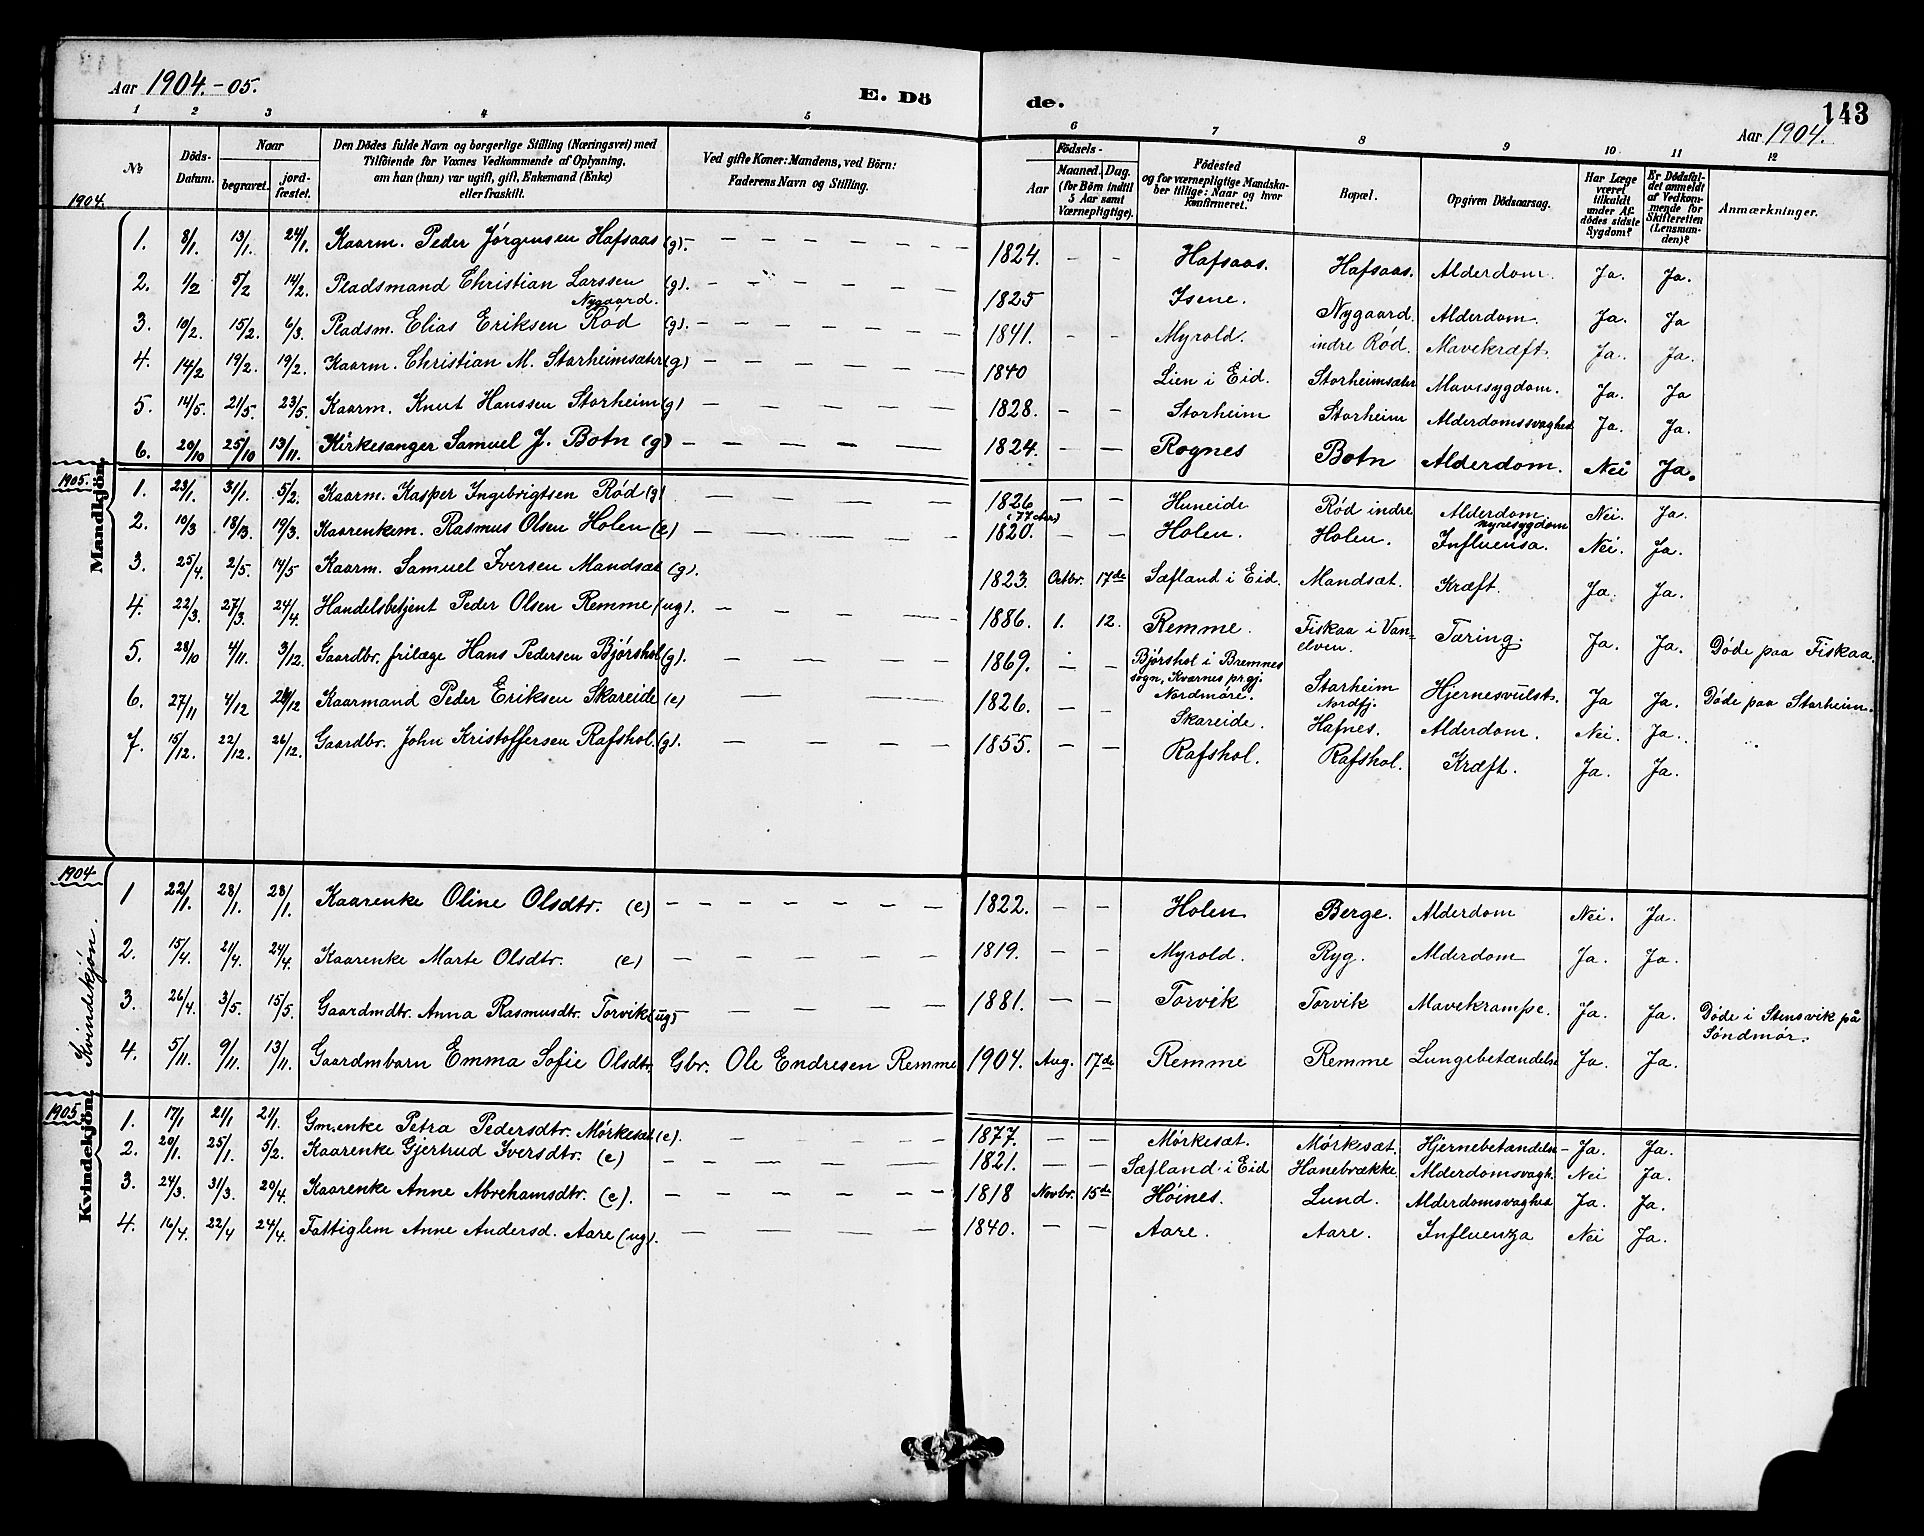 Aar 1904.-05.
E. Döde.
143
Aar 1904.
1 2 3 4 5 6 7 8 9 10 11 12
No.
Döds-Datum.
Naar
begravet.
jordfæstet.
Den Dödes fulde Navn og borgerlige Stilling (Næringsvei) med
Tilföiende for Voxnes Vedkommende af Oplysning,
om han (hun) var ugift, gift, Enkemand (Enke)
eller fraskilt.
Ved gifte Koner: Mandens, ved Börn:
Faderens Navn og Stilling.
Födsels-
Aar
Maaned. Dag.
(for Börn indtil
5 Aar samt
Værnepligtige).
Födested
og for værnepligtige Mandska-
ber tillige: Naar og hvor
konfirmeret.
Bopæl.
Opgiven Dödsaarsag.
Har Læge
været
tilkaldt
under Af-
dödes sidste
Sygdom?
Er Dödsfal-
det anmeldt
af Vedkom-
mende for
Skifteretten
(Lensman-
den)?
Anmærkninger.
1904.
Mandkjön.
1. 8/1. 13/1. 24/1. Kaarm. Peder Jørgensen Hafsaas (g) 1824. Hafsaas. Hafsaas. Alderdom. Ja. Ja.
2. 1/2 5/2 14/2. Pladsmand Christian Larssen Nygaard. (g). 1825 Isene. Nygaard. Alderdom. Ja. Ja
3. 10/2. 15/2. 6/3. Pladsm. Elias Eriksen Rød (g). 1841. Myrold. indre Rød. Mavekræft. Ja. Ja.
4. 14/2 19/2. 19/2. Kaarm. Christian M. Storheimsæter (g) 1840 Lien i Eid. Storheimsæter Mavesygdom. Ja. Ja
5. 14/5. 21/5. 23/5. Kaarm. Knut Hanssen Storheim (g) 1828. Storheim Storheim Alderdomssvaghed Ja. Ja.
6. 20/10 25/10 13/11. Kirkesanger Samuel J. Botn (g) 1824. Rognes Botn Alderdom. Nei Ja.
1905.
1. 23/1. 31/1. 5/2. Kaarm. Kasper Ingebrigtsen Rød (g) 1826 Huneide Rød indre Alderdom. Nei. Ja.
2. 10/3 18/3. 19/3. Kaarenkem. Rasmus Olsen Holen (e) 1820. Holen. Holen. Nyresygdom Influensa. Nei. Ja.
3. 25/4. 2/5. 14/5 Kaarm. Samuel Iversen Mandsæt (g). 1823. Octbr. 17de Sæfland i Eid. Mandsæt. Kræft. Ja. Ja.
4. 22/3. 27/3. 24/4. Handelsbetjent Peder Olsen Remme (ug). 1886. 1. 12. Remme. Fiskaa i Vanelven. Tæring. Ja. Ja. Døde paa Fiskaa.
5. 28/10 4/11. 3/12. Gaardbr. frilæge Hans Pedersen Bjørshol (g). 1869. Bjørshol i Bremnes sogn, Kværnes pr.gj. Nordmøre. Storheim Nordfj. Hjernesvulst. Ja Ja. Døde paa Storheim.
6. 27/11 4/12 26/12 Kaarmand Peder Eriksen Skareide (e) 1826. Skareide. Hafnes. Alderdom. Nei. Ja.
7. 15/12. 22/12. 26/12. Gaardbr. John Kristoffersen Rafshol. (g). 1855. Rafshol. Rafshol. Kræft. Ja. Ja.
1904
Kvindekjön.
1 22/1. 28/1. 28/1. Kaarenke Oline Olsdtr. (e) 1822. Holen Berge. Alderdom Nei. Ja.
2. 15/4. 21/4. 24/4. Kaarenke Marte Olsdtr. (e) 1819. Myrold. Ryg. Alderdom Ja. Ja.
3. 26/4. 3/5. 15/5. Gaardmdtr. Anna Rasmusdtr. Torvik (ug) 1881. Torvik Torvik Mavekrampe. Ja. Ja. Døde i Stensvik på Søndmør.
4. 5/11. 9/11. 13/11. Gaardmbarn Emma Sofie Olsdtr. Gbr. Ole Endresen Remme 1904. Aug. 17de Remme Remme Lungebetændelse Ja. Ja.
1905
Kvindekjön.
1. 17/1 21/1 21/1. Gm.enke Petra Pedersdtr. Mørkesæt (e). 1877. Mørkesæt. Mørkesæt. Hjernebetændelse Ja. Ja.
2. 20/1. 25/1. 5/2. Kaarenke Gjertrud Iversdtr. (e) 1821. Sæfland i Eid Hanebrække. Alderdomsvagh. Nei Ja.
3. 24/3. 31/3. 20/4. Kaarenke Anne Abrehamsdtr. (e). 1818 Novbr. 15de Høines. Lund. Alderdomsvaghed Ja. Ja.
4. 16/4. 22/4 24/4. Fattiglem Anne Andersd. Aare (ug). 1840. Aare. Aare. Influenza Nei Ja.